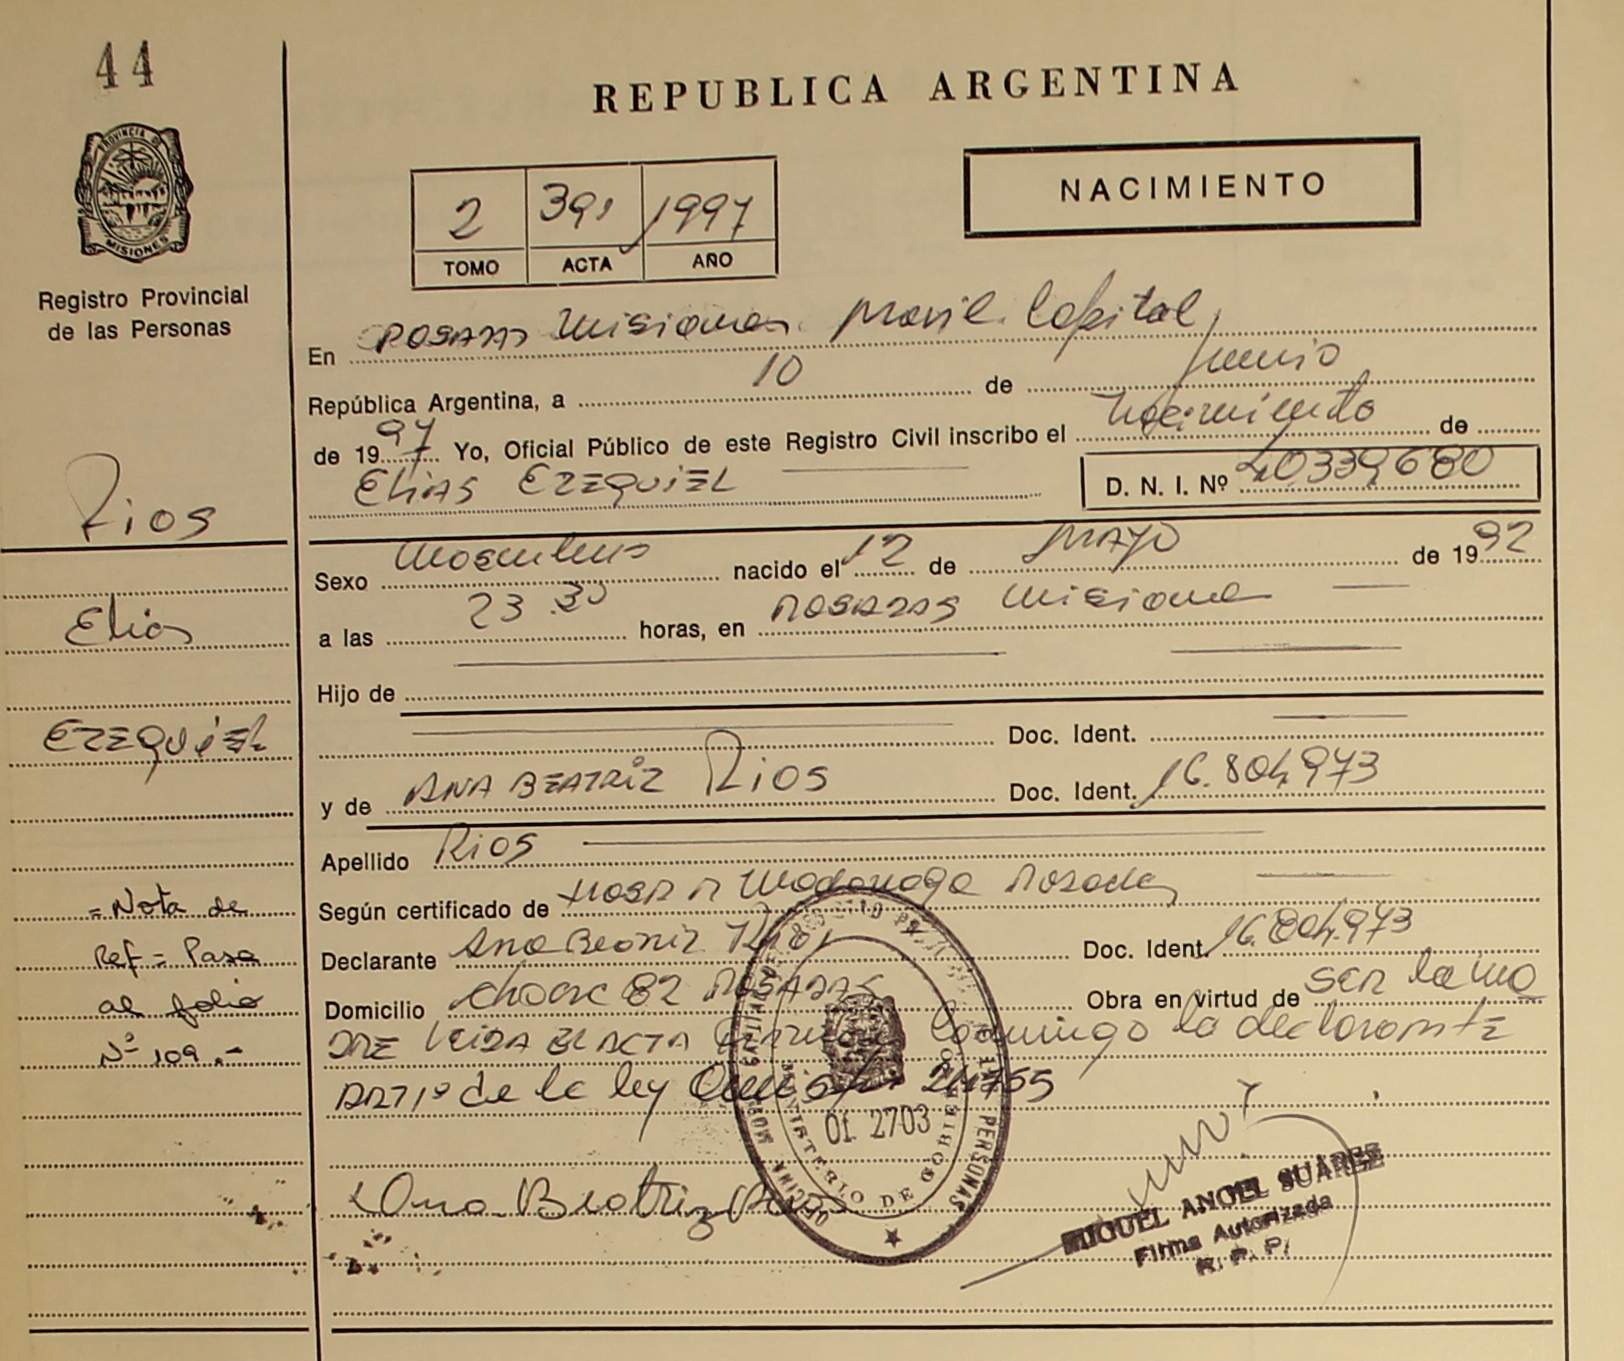 44
REPUBLICA ARGENTINA
PROVINCIA DE
MISIONES
Registro Provincial
de las Personas
NACIMIENTO
2 391 1997
TOMO ACTA AÑO
En POSADAS Misiones Movil Capital
República Argentina, a 10 de Junio
de 1997 Yo, Oficial Público de este Registro Civil inscribo el Nacimiento de
ELIAS EZEQUIEL D. N. I. Nº 40339680
Rios
Sexo Masculino nacido el 12 de MAYO de 1992
a las 23.30 horas, en POSADAS Misiones
Elias
Hijo de
EZEQUIEL
Doc. Ident.
y de ANA BEATRIZ Rios Doc. Ident. 16.804.973
Apellido Rios
= Nota de
Ref = Pasa
al folio
Nº 109.-
Según certificado de HOSP R Madariaga Posadas
Declarante Ana Beatriz Rios Doc. Ident. 16.804.973
Domicilio 82 POSADAS Obra en virtud de SER la MA
DRE LEIDA EL ACTA la declarante
ART 1º de la ley 24755
OI. 2703
MINISTERIO DE GOBIERNO
PERSONAS
Ana Beatriz Rios
MIGUEL ANGEL SUAREZ
Firma Autorizada
R. P. P.